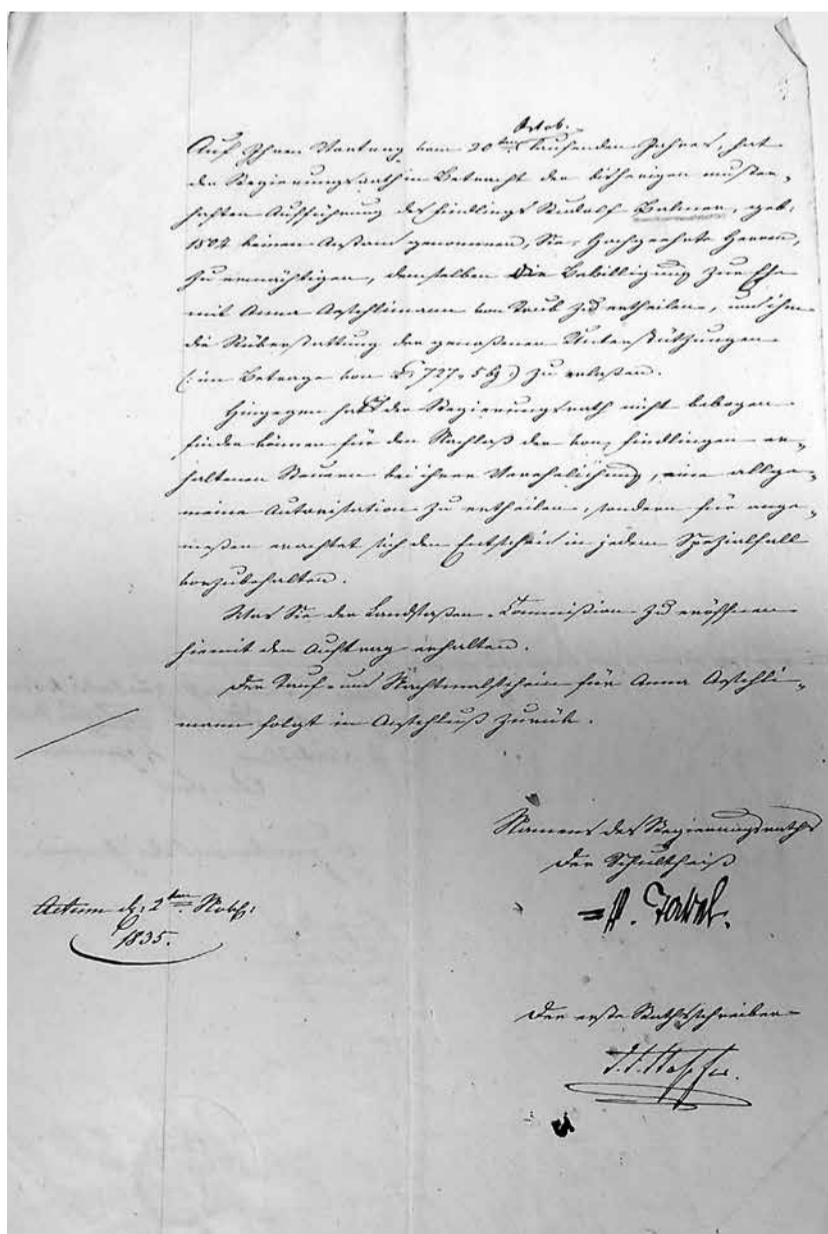 Octob.
Auf Ihren Vortrag vom 20ten laufenden Jahres, hat
der Regierungsrath in Betracht der bisherigen muster-
haften Aufführung des Findlings Rudolf Balmer, geb.
1802 keinen Anstand genommen, Sie, Hochgeehrte Herren,
zu ermächtigen, demselben die Bewilligung zur Ehe
mit Anna Aeschlimann von Trub zu ertheilen, und ihm
die Rükerstattung der genoßenen Unterstützungen
(: im Betrage von 727. 5 bz.) zu erlaßen.
Hingegen hat der Regierungsrath nicht bewogen
finden können für den Nachlaß der von Findlingen er-
haltenen Steuern bei ihrer Verehelichung, eine allge-
meine Autorisation zu ertheilen, sondern für ange-
meßen erachtet sich den Entscheid in jedem Spezialfall
vorzubehalten.
Was Sie der Landsaßen-Commißion zu eröffnen
hiemit den Auftrag erhalten.
Der Tauf- und Nachtmalschein für Anna Aeschli-
mann folgt im Anschluß zurük.
Namens des Regierungsraths
Der Schultheiß
Tavel.
Actum d. 2ten Novb.
1835.
Der erste Rathsschreiber
J. F. Stapfer.